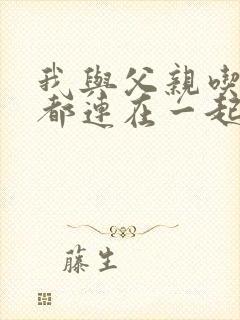 我與父親喫
都連在一起
藤生